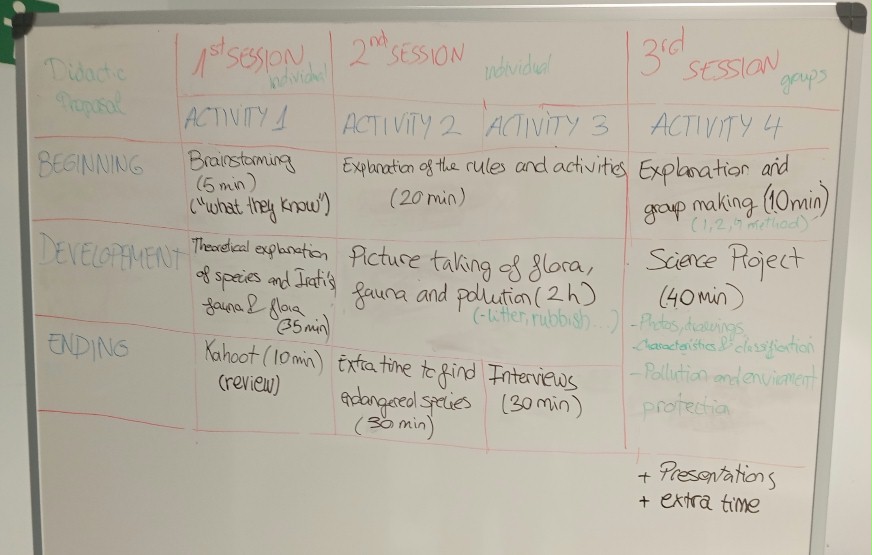 Didactic
Proposal
1st SESSION
individual
2nd SESSION
individual
3rd
SESSION
groups
ACTIVITY 1
ACTIVITY 2
ACTIVITY 3
ACTIVITY 4
BEGINNING
Brainstorming
(5 min)
("what they know")
Explanation of the rules and activities
(20 min)
Explanation and
group making (10min)
(1, 2, method)
DEVELOPEMENT
Theoretical explanation
of species and Irati's
fauna & flora
(35min)
Picture taking of flora,
fauna and pollution (2h)
(-litter, rubbish...)
Science Project
(40min)
- Photos, drawings
- Characteristics & classification
- Pollution and enviroment
protection
ENDING
Kahoot (10min)
(review)
Extra time to find
endangered species
(30 min)
Interviews
(30min)
+ Presentations
+ extra time